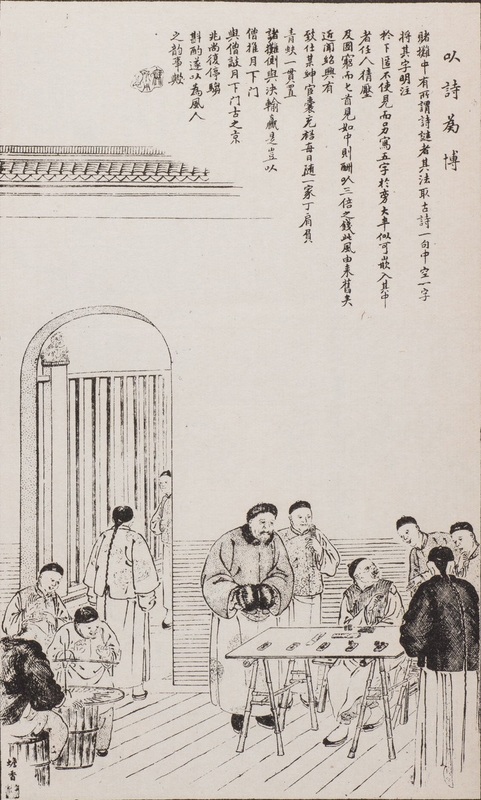 以詩為博
賭攤中有所謂詩謎者其法取古詩一句中空一字
將其字明注
於下 不使見而另寫五字於旁大率似可嵌入其中
者任人猜壓
及圖窮而匕首見如中則酬以三倍之錢此風由來舊矣
近聞紹興有
致仕某紳宦囊充裕每日随一家丁肩負
青蚨一貫置
諸攤側與決輸贏是豈以
僧推月下門
與僧敲月下門古之京
兆尚復停驂
斟酌遂以為風人
之韵事歟
蟾香